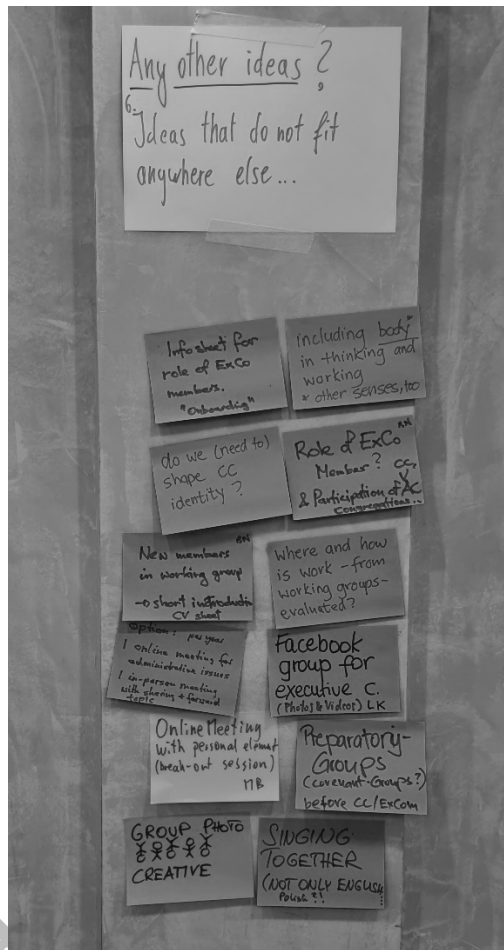 Any other ideas?
6.
Ideas that do not fit
anywhere else...
Infosheet for
role of ExCo
members.
"Onboarding"
including body*
in thinking and
working
* other senses, too
do we (need to)
shape CC
identity?
RN
Role of ExCo
Member? CC,
& Participation of AC
Congregations...
RN
New members
in working group
→ short introduction
CV sheet
Where and how
is work - from
working groups -
evaluated?
Option: per year
1 online meeting for
administrative issues
1 in-person meeting
with sharing + forward
topic
Facebook
group for
executive C.
(Photos & Videos) LK
Online Meeting
with personal element
(break-out session)
MB
Preparatory-
Groups
(covenant-Groups?)
before CC/ExCom
GROUP PHOTO
CREATIVE
SINGING
TOGETHER
(NOT ONLY ENGLISH
Polish?!